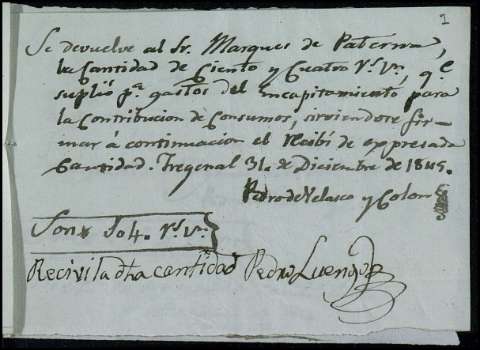 1
Se devuelve al Sr. Marques de Paterna,
la Cantidad de Ciento y Cuatro Rs. Vn., qe
suplió pa. gastos del encapitamiento para
la Contribucion de Consumos, sirviendose fir-
mar á continuacion el Recibí de expresada
Cantidad. Fregenal 31. de Diciembre de 1845.
Pedro de Velasco y Colon
Son 104. Rs. Vn.
Recivi la dha cantidad Pedro Luengo